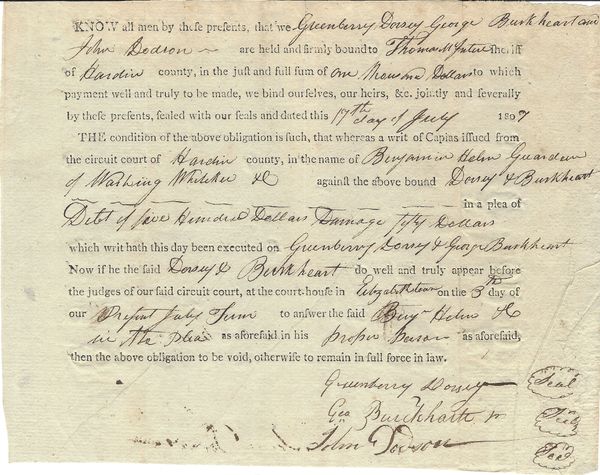 KNOW all men by theſe preſents, that we Greenberry Dorsey George Burkheart and
John Dodson are held and firmly bound to Thomas ſheriff
of Hardin county, in the juſt and full ſum of one Thousand Dollars to which
payment well and truly to be made, we bind ourſelves, our heirs, &c. jointly and ſeverally
by theſe preſents, ſealed with our ſeals and dated this 17th day of July 1807
THE condition of the above obligation is ſuch, that whereas a writ of Capias iſſued from
the circuit court of Hardin county, in the name of Benjamin Helm Guardean
of Washing Whitaker &C againſt the above bound Dorsey & Burkheart
in a plea of
Debt of five Hundred Dollars Damage fifty Dollars
which writ hath this day been executed on Greenberry Dorsey & George Burkheart
Now if he the ſaid Dorsey & Burkheart do well and truly appear before
the judges of our ſaid circuit court, at the court-houſe in Elizabethtown on the 3th day of
our Present July Term to anſwer the ſaid Benjn Helm &C
in the plea as aforeſaid in his proper person as aforeſaid,
then the above obligation to be void, otherwiſe to remain in full force in law.
Greenberry Dorsey Seal
Geo Burkhartt Jr Seal
John Dodson Seal